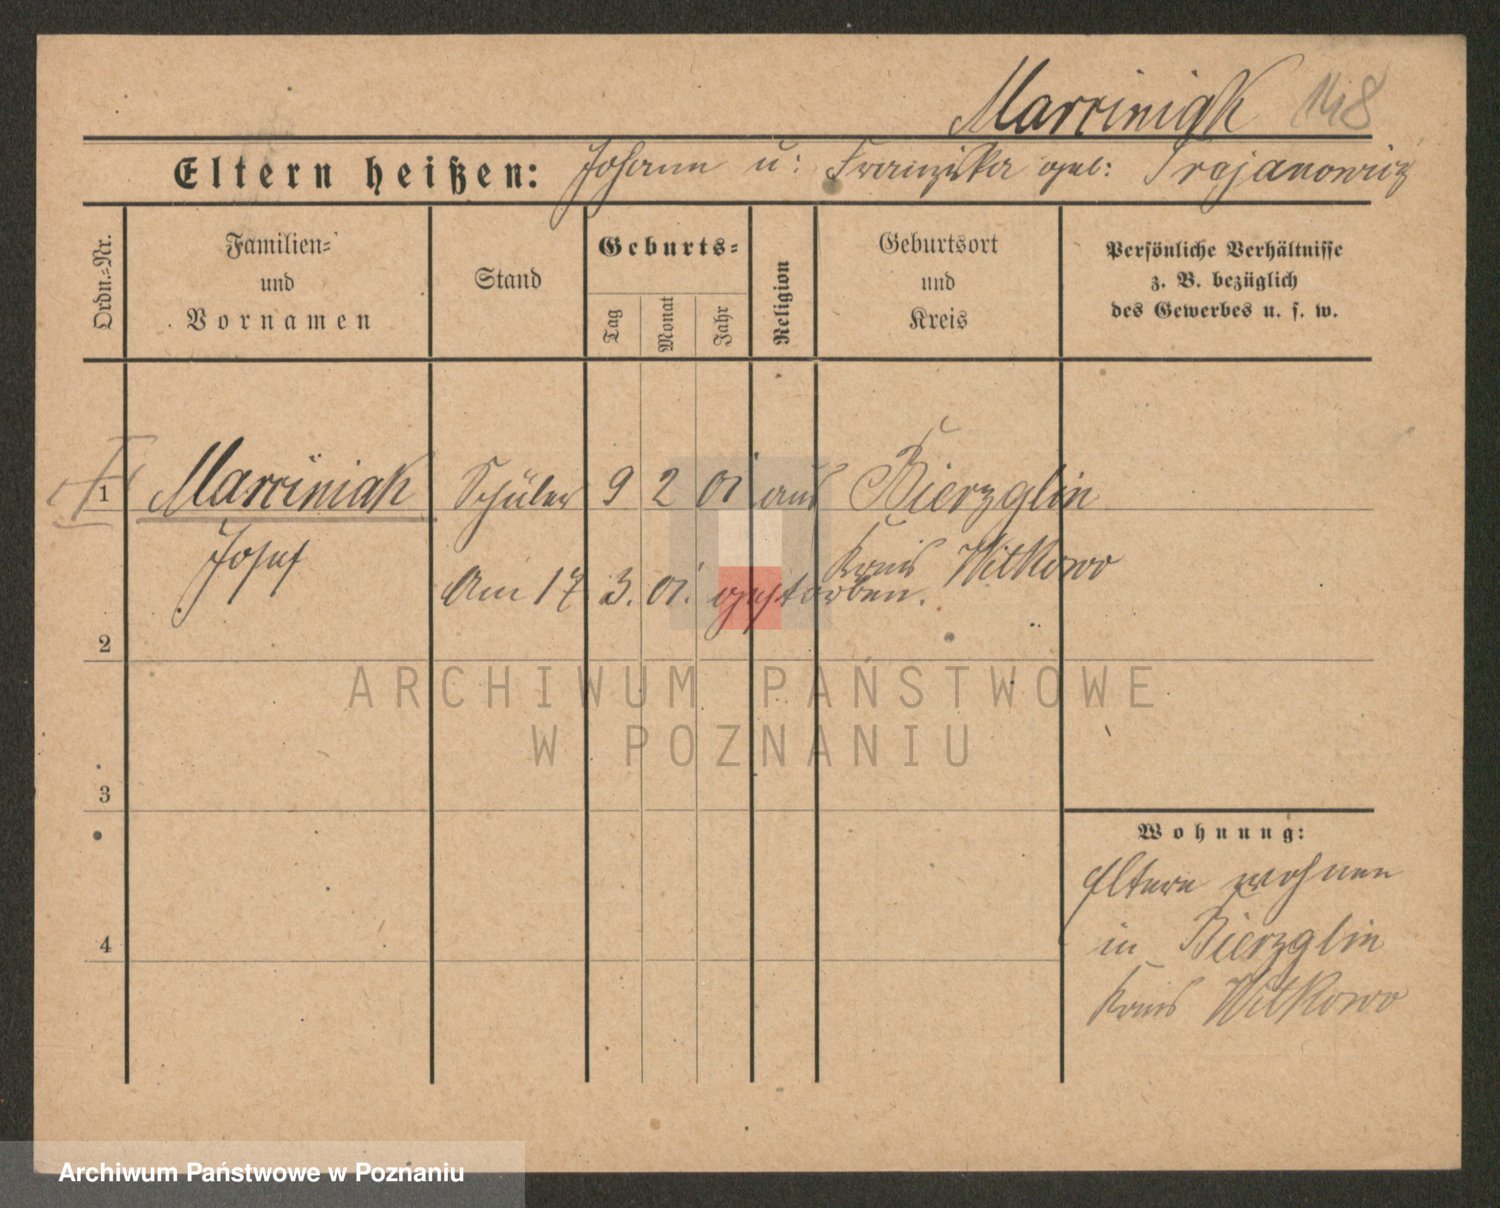 Marciniak 148
Eltern heißen: Johann u: Franziska geb: Trojanowicz
Ordn.-Nr.
Familien- und Vornamen
Stand
Geburts-
Tag
Monat
Jahr
Religion
Geburtsort und Kreis
Persönliche Verhältnisse
z. B. bezüglich
des Gewerbes u. s. w.
1 Marciniak Schüler 9 2 01 aus Bierzglin
Josef Kreis Witkowo
Am 17 3. 01. gestorben.
2
3
4
Wohnung:
Eltern wohnen
in Bierzglin
Kreis Witkowo
ARCHIWUM PAŃSTWOWE
W POZNANIU
Archiwum Państwowe w Poznaniu